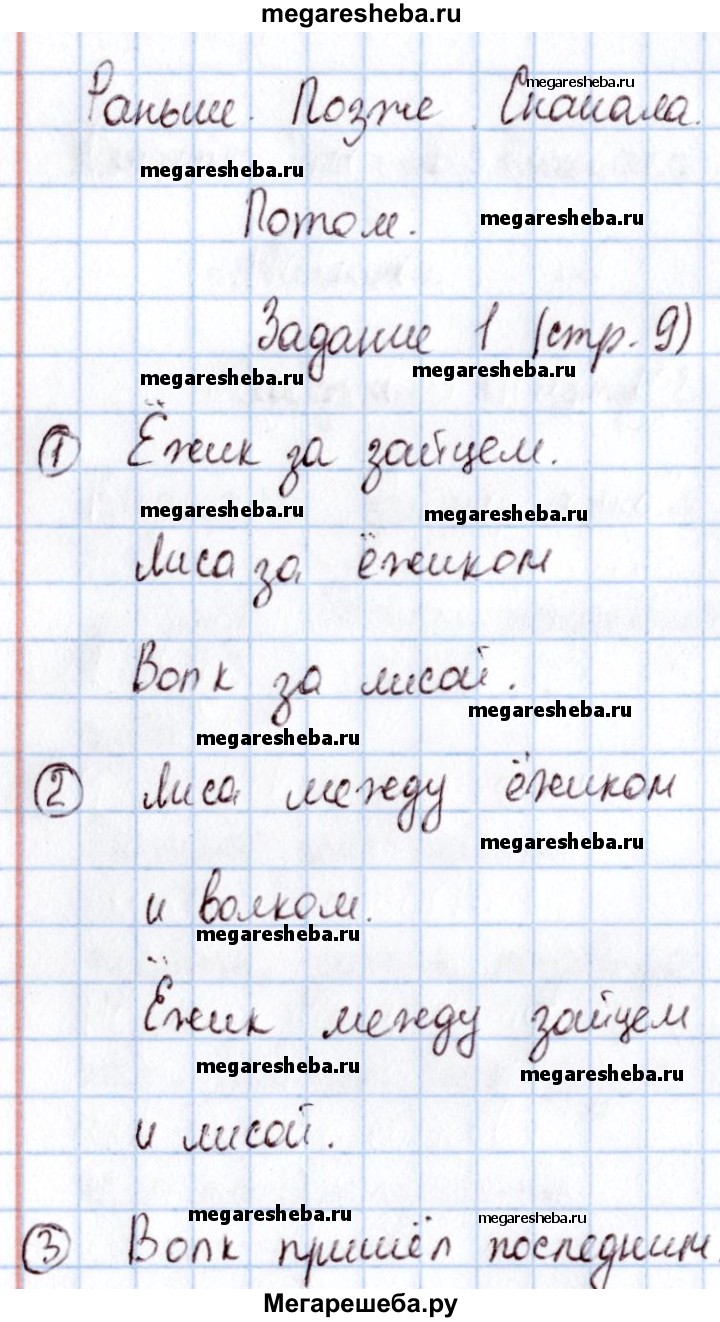 megaresheba.ru
megaresheba.ru
Раньше. Позже. Сначала.
megaresheba.ru
Потом.
megaresheba.ru
Задание 1 (стр. 9)
megaresheba.ru
megaresheba.ru
① Ёжик за зайцем.
megaresheba.ru
megaresheba.ru
Лиса за ёжиком
Волк за лисой.
megaresheba.ru
megaresheba.ru
② Лиса между ёжиком
megaresheba.ru
и волком.
megaresheba.ru
Ёжик между зайцем
megaresheba.ru
megaresheba.ru
и лисой.
megaresheba.ru
megaresheba.ru
③ Волк пришёл последним.
Мегарешеба.ру